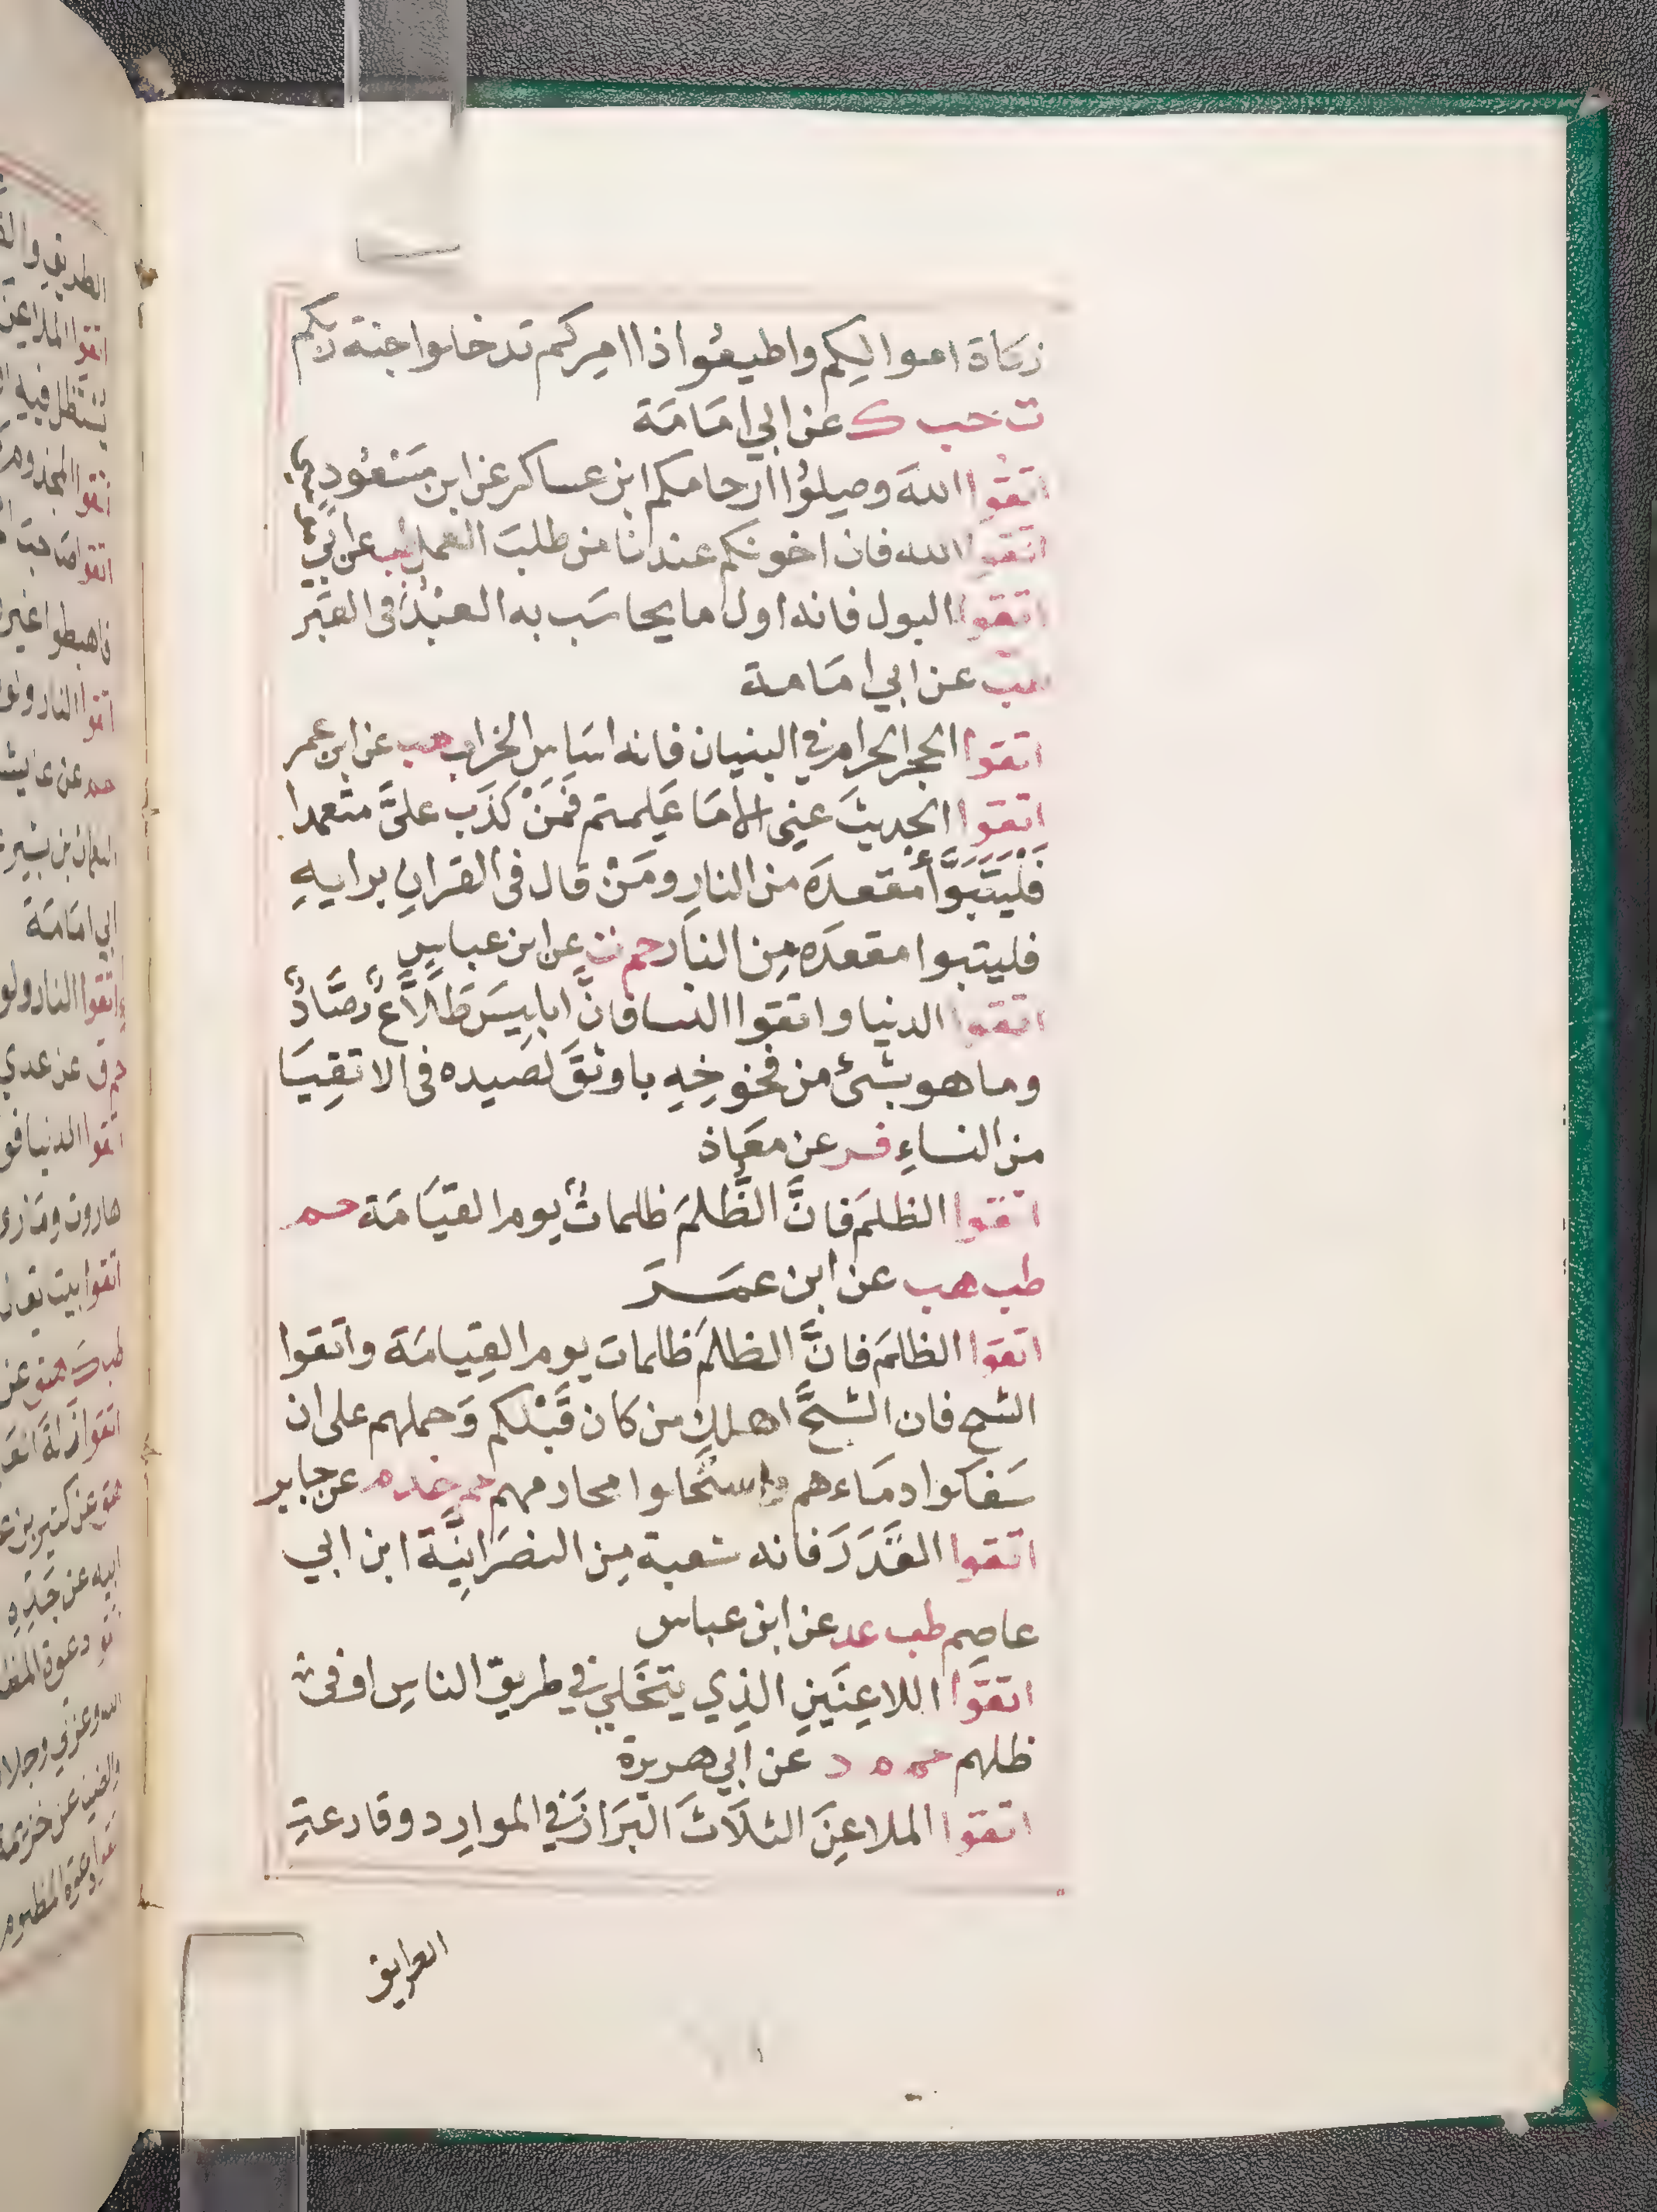 زكاة اموالكم واطيعوا ذا امركم تدخلوا جنة ربكم
ت حب ك عن ابي امَامَة
اتقوا اللهَ وصِلوُا ارحامكم ابن عساكر عن ابن مَسْعُودٍ
اتقوا الله فان اخونكم عندنا من طلبَ العمل طب عن ابي
اتقوا البول فانه اول ما يحاسَب به العَبْدُ في القَبْر
طب عن ابي امَامة
اتقوا الحجر الحرام في البنيان فانه اسَاس الخراب هب عن ابن عمر
اتقوا الحديثَ عني الا مَا عَلمتم فَمَنْ كذَب علىَّ متعمدا
فَلْيَتَبَوَّأْ مقعدَه من النارِ ومَنْ قال في القرانِ برايهِ
فليتبوا مقعدَه مِن النار حم ت عن ابن عباسٍ
اتقوا الدنيا واتقوا النسا فانَّ ابليسَ طَلَّاعٌ رَصَّادٌ
وما هو بشئ من فخوخِهِ باوثقَ لصَيده في الاتقِيَا
من النساءِ فر عن معَاذ
اتقوا الظلمَ فانَّ الظُّلمَ ظلماتٌ يوم القيَامَة حم
طب هب عن ابن عمَر
اتقوا الظلمَ فانَّ الظلمَ ظلمات يوم القِيامَة واتقوا
الشح فان الشحَّ اهلك من كان قَبْلكم وَحملهم على ان
سَفكوا دمَاءهم واستحَلوا محارمهم حم خد م عن جابر
اتقوا القَدَرَ فانه شعبة مِن النصرَانِيَّة ابن ابي
عاصِم طب عد عن ابن عباس
اتقوَا اللاعِنَينِ الذِي يتخَلي في طريق الناسِ او في
ظلهم حم م د عن ابي هريرة
اتقوا الملاعِنَ الثلَاثَ البَرَازَ في الموارِد وقارعةِ